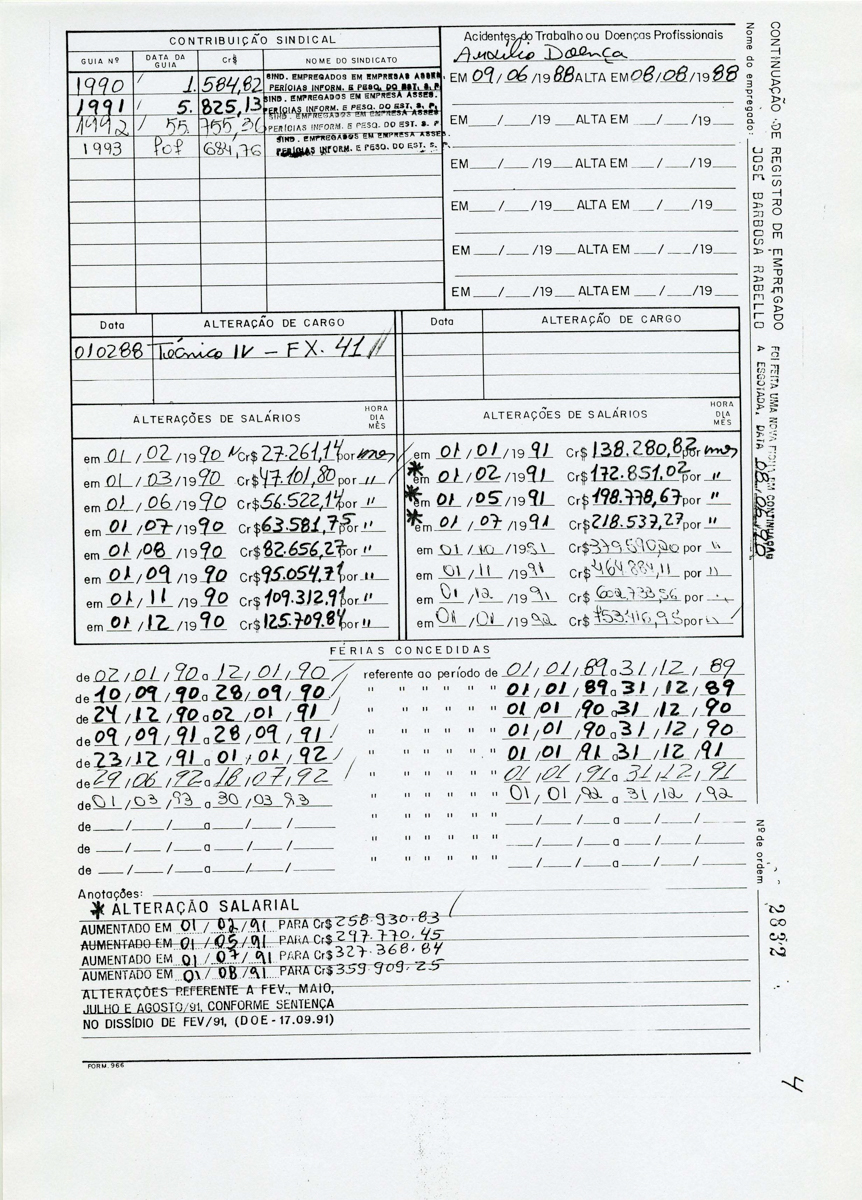 CONTRIBUIÇÃO SINDICAL
GUIA Nº DATA DA GUIA Cr$ NOME DO SINDICATO
1990 1.584,82 SIND. EMPREGADOS EM EMPRESAS ASSES.
PERÍCIAS INFORM. E PESQ. DO EST. S. P.
1991 5.825,13 SIND. EMPREGADOS EM EMPRESA ASSES.
PERÍCIAS INFORM. E PESQ. DO EST. S. P.
1992 55.755,36 SIND. EMPREGADOS EM EMPRESA ASSES
PERÍCIAS INFORM. E PESQ. DO EST. S. P
1993 684,76 SIND. EMPREGADOS EM EMPRESA ASSES.
PERÍCIAS INFORM. E PESQ. DO EST. S. P.
Acidentes do Trabalho ou Doenças Profissionais
Auxílio Doença
EM 09/06/1988 ALTA EM 08/08/1988
EM / /19 ALTA EM / /19
EM / /19 ALTA EM / /19
EM / /19 ALTA EM / /19
EM / /19 ALTA EM / /19
EM / /19 ALTA EM / /19
Data ALTERAÇÃO DE CARGO
010288 Técnico IV - FX. 41
Data ALTERAÇÃO DE CARGO
ALTERAÇÕES DE SALÁRIOS HORA DIA MÊS
em 01/02/1990 Cr$ 27.261,14 por mes
em 01/03/1990 Cr$ 47.101,80 por "
em 01/06/1990 Cr$ 56.522,14 por "
em 01/07/1990 Cr$ 63.581,75 por "
em 01/08/1990 Cr$ 82.656,27 por "
em 01/09/1990 Cr$ 95.054,71 por "
em 01/11/1990 Cr$ 109.312,91 por "
em 01/12/1990 Cr$ 125.709,84 por "
ALTERAÇÕES DE SALÁRIOS HORA DIA MÊS
em 01/01/1991 Cr$ 138.280,82 por mes
* em 01/02/1991 Cr$ 172.851,02 por "
* em 01/05/1991 Cr$ 198.778,67 por "
* em 01/07/1991 Cr$ 218.537,27 por "
em 01/10/1991 Cr$ por "
em 01/11/1991 Cr$ 464.884,11 por "
em 01/12/1991 Cr$ 602.733,56 por "
em 01/01/1992 Cr$ 753.416,95 por "
FÉRIAS CONCEDIDAS
de 02/01/90 a 12/01/90 referente ao período de 01/01/89 a 31/12/89
de 10/09/90 a 28/09/90 " " " " " 01/01/89 a 31/12/89
de 24/12/90 a 02/01/91 " " " " " 01/01/90 a 31/12/90
de 09/09/91 a 28/09/91 " " " " " 01/01/90 a 31/12/90
de 23/12/91 a 01/01/92 " " " " " 01/01/91 a 31/12/91
de 29/06/92 a 18/07/92 " " " " " 01/01/91 a 31/12/91
de 01/03/93 a 30/03/93 " " " " " 01/01/92 a 31/12/92
de / / a / / " " " " " / / a / /
de / / a / / " " " " " / / a / /
de / / a / / " " " " " / / a / /
Anotações:
* ALTERAÇÃO SALARIAL
AUMENTADO EM 01/02/91 PARA Cr$ 258.930.83
AUMENTADO EM 01/05/91 PARA Cr$ 297.770.45
AUMENTADO EM 01/07/91 PARA Cr$ 327.368.84
AUMENTADO EM 01/08/91 PARA Cr$ 359.909.25
ALTERAÇÕES REFERENTE A FEV., MAIO,
JULHO E AGOSTO/91, CONFORME SENTENÇA
NO DISSÍDIO DE FEV/91, (DOE - 17.09.91)
FORM. 966
CONTINUAÇÃO DE REGISTRO DE EMPREGADO
Nome do empregado: JOSE BARBOSA RABELLO
FOI FEITA UMA NOVA FICHA EM CONTINUAÇÃO
A ESGOTADA, DATA
Nº de ordem 2832
4